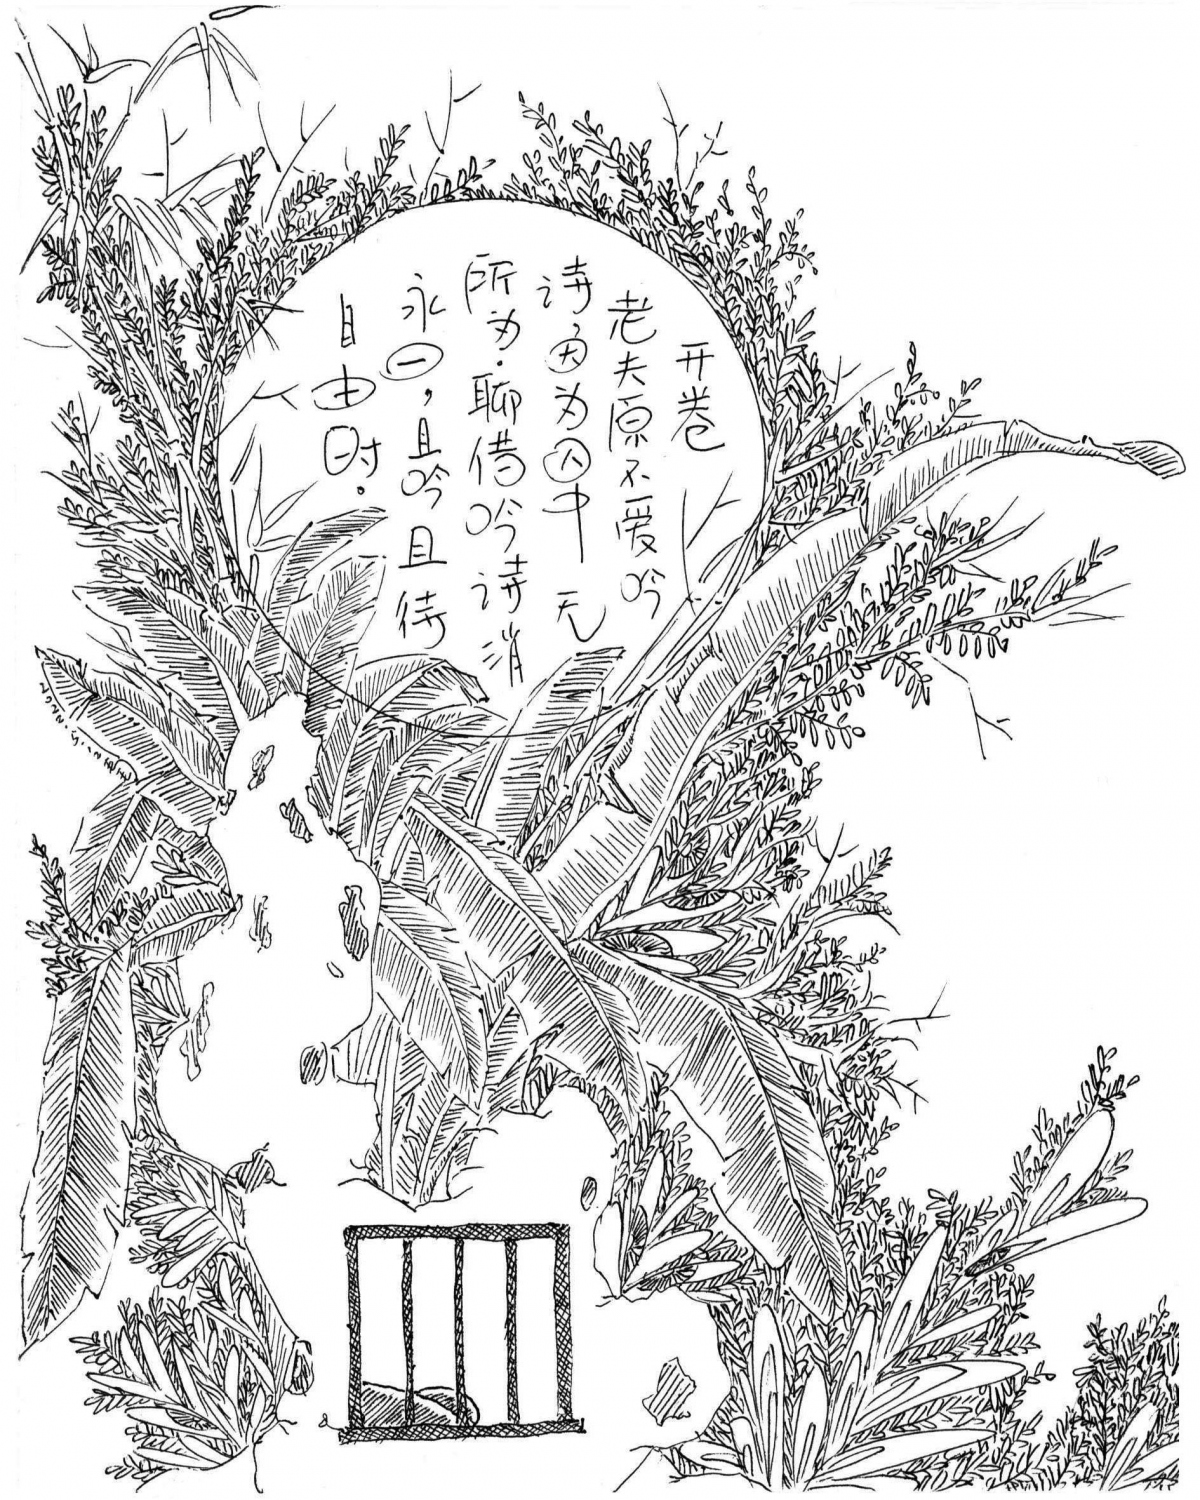 开卷
老夫原不爱吟
诗,因为囚中无
所为.聊借吟诗消
永日,且吟且待
自由时.